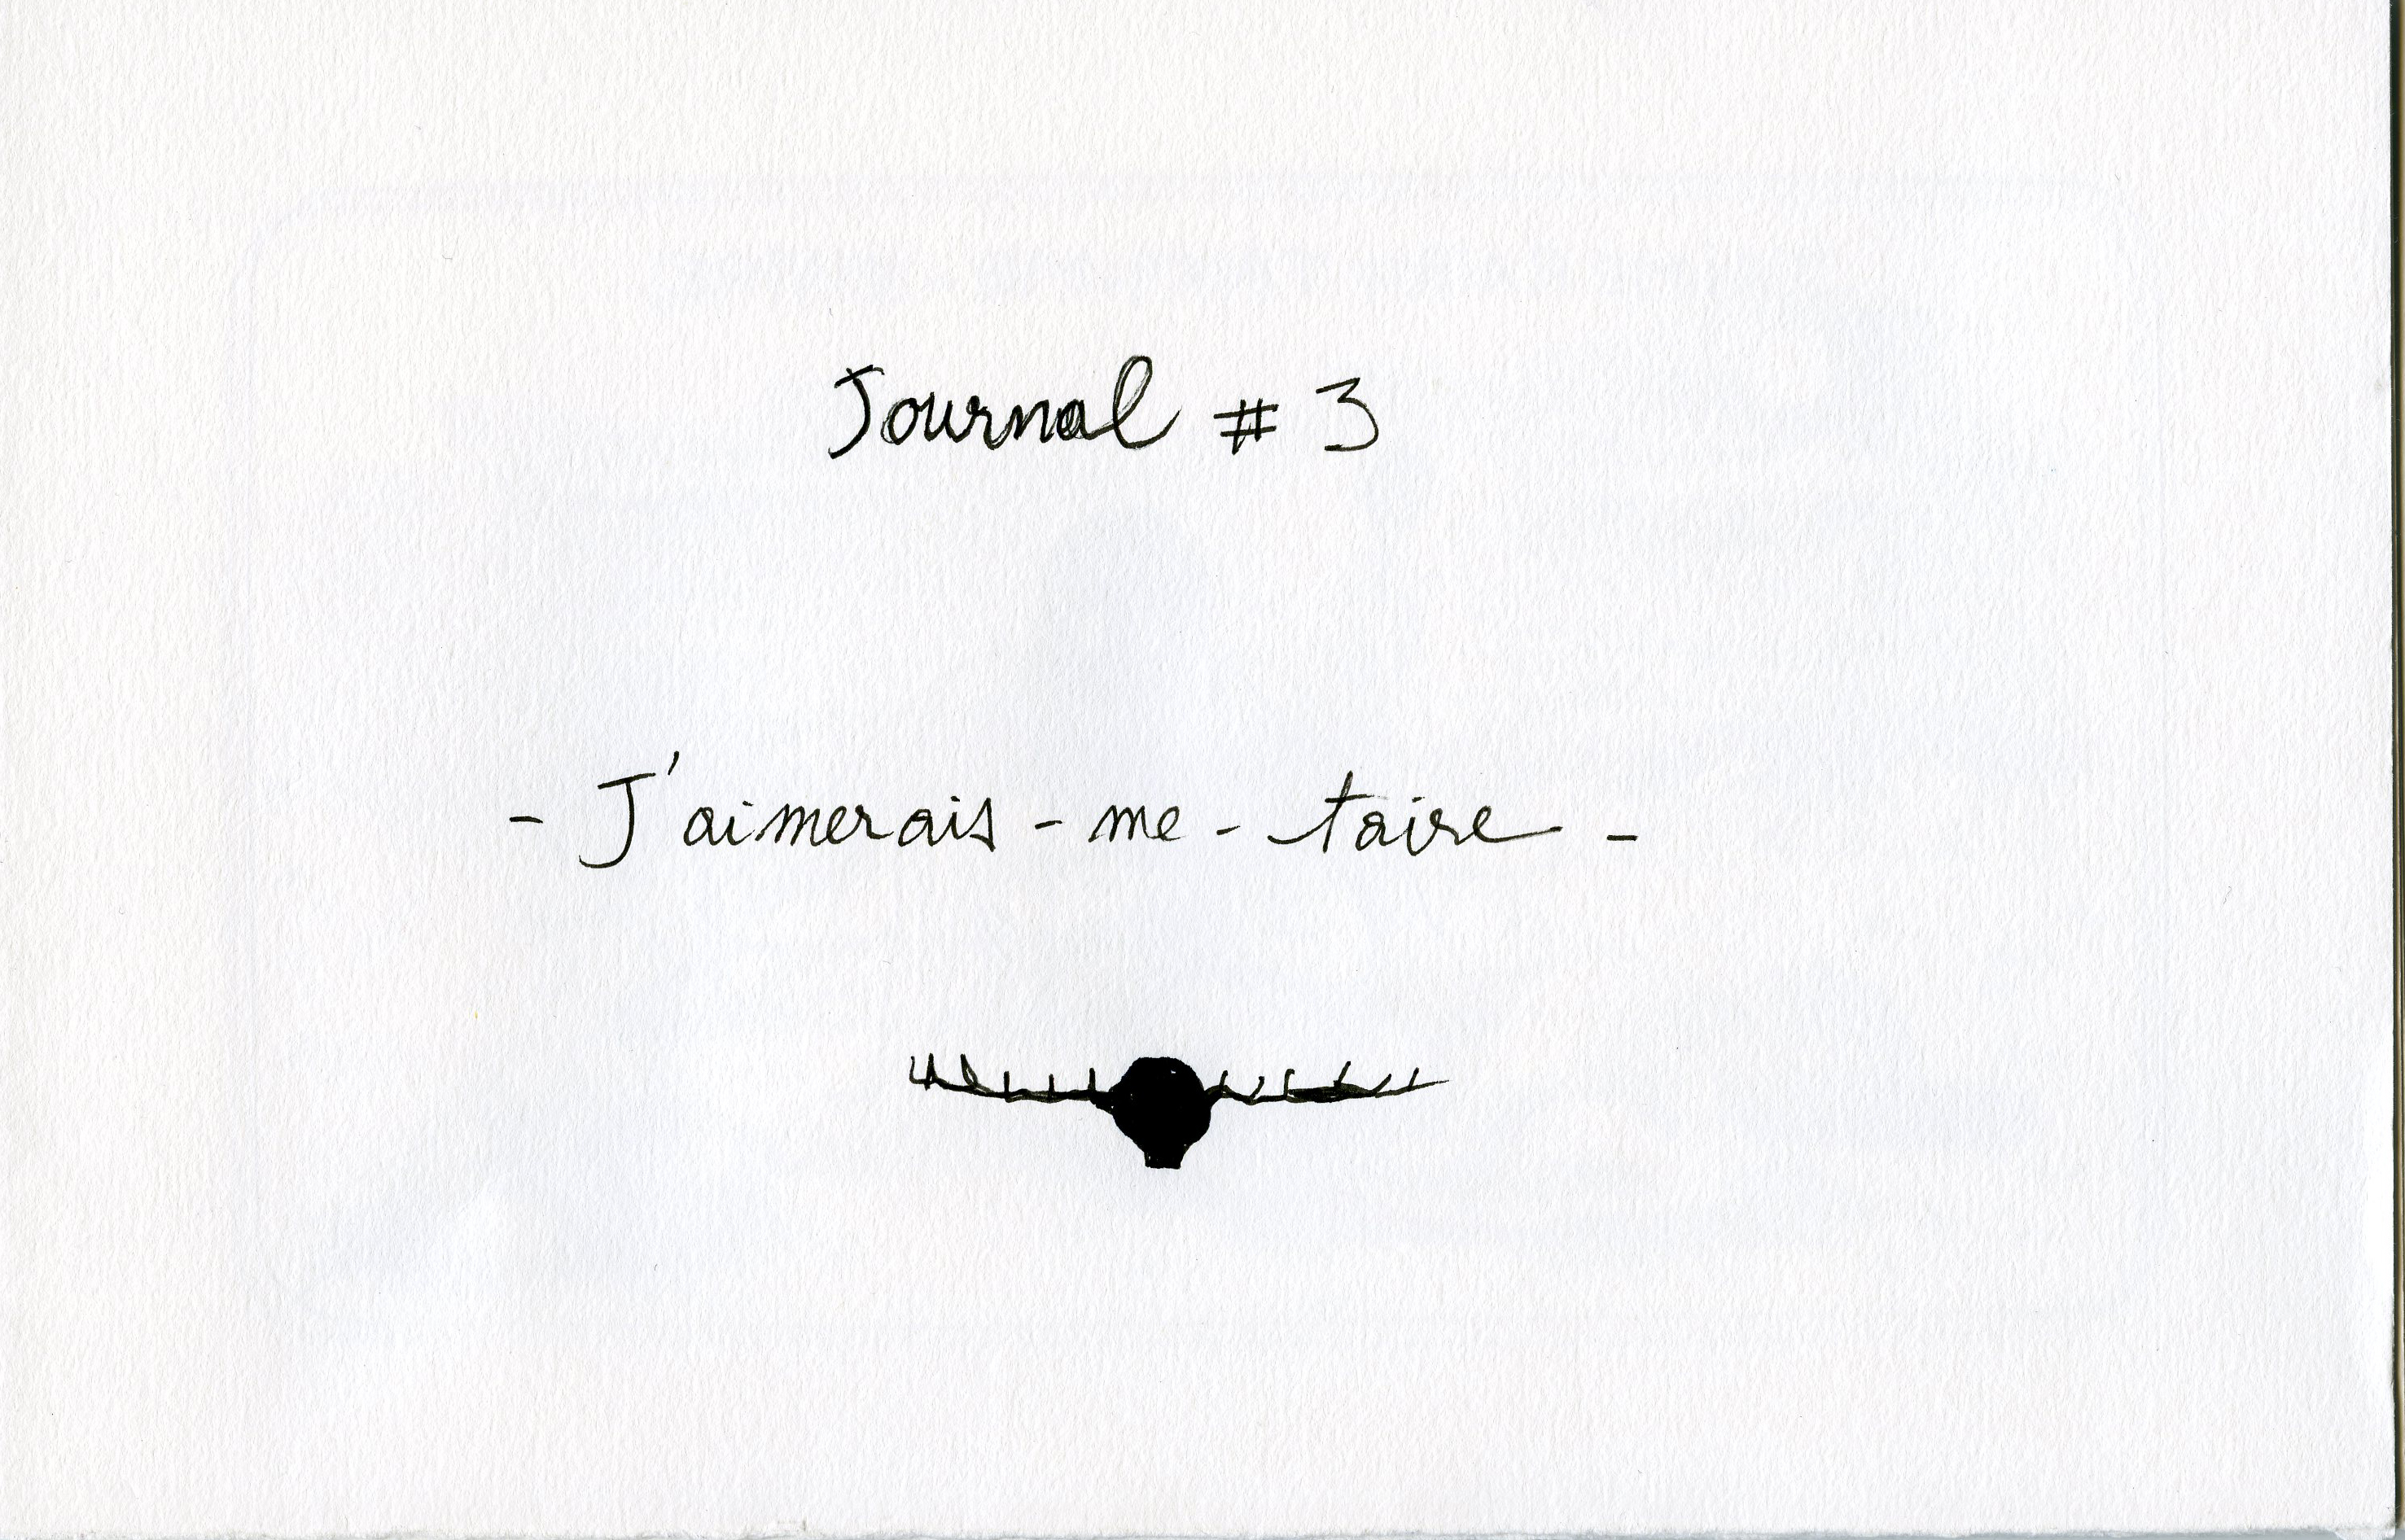 Journal # 3
- J'aimerais - me - taire -